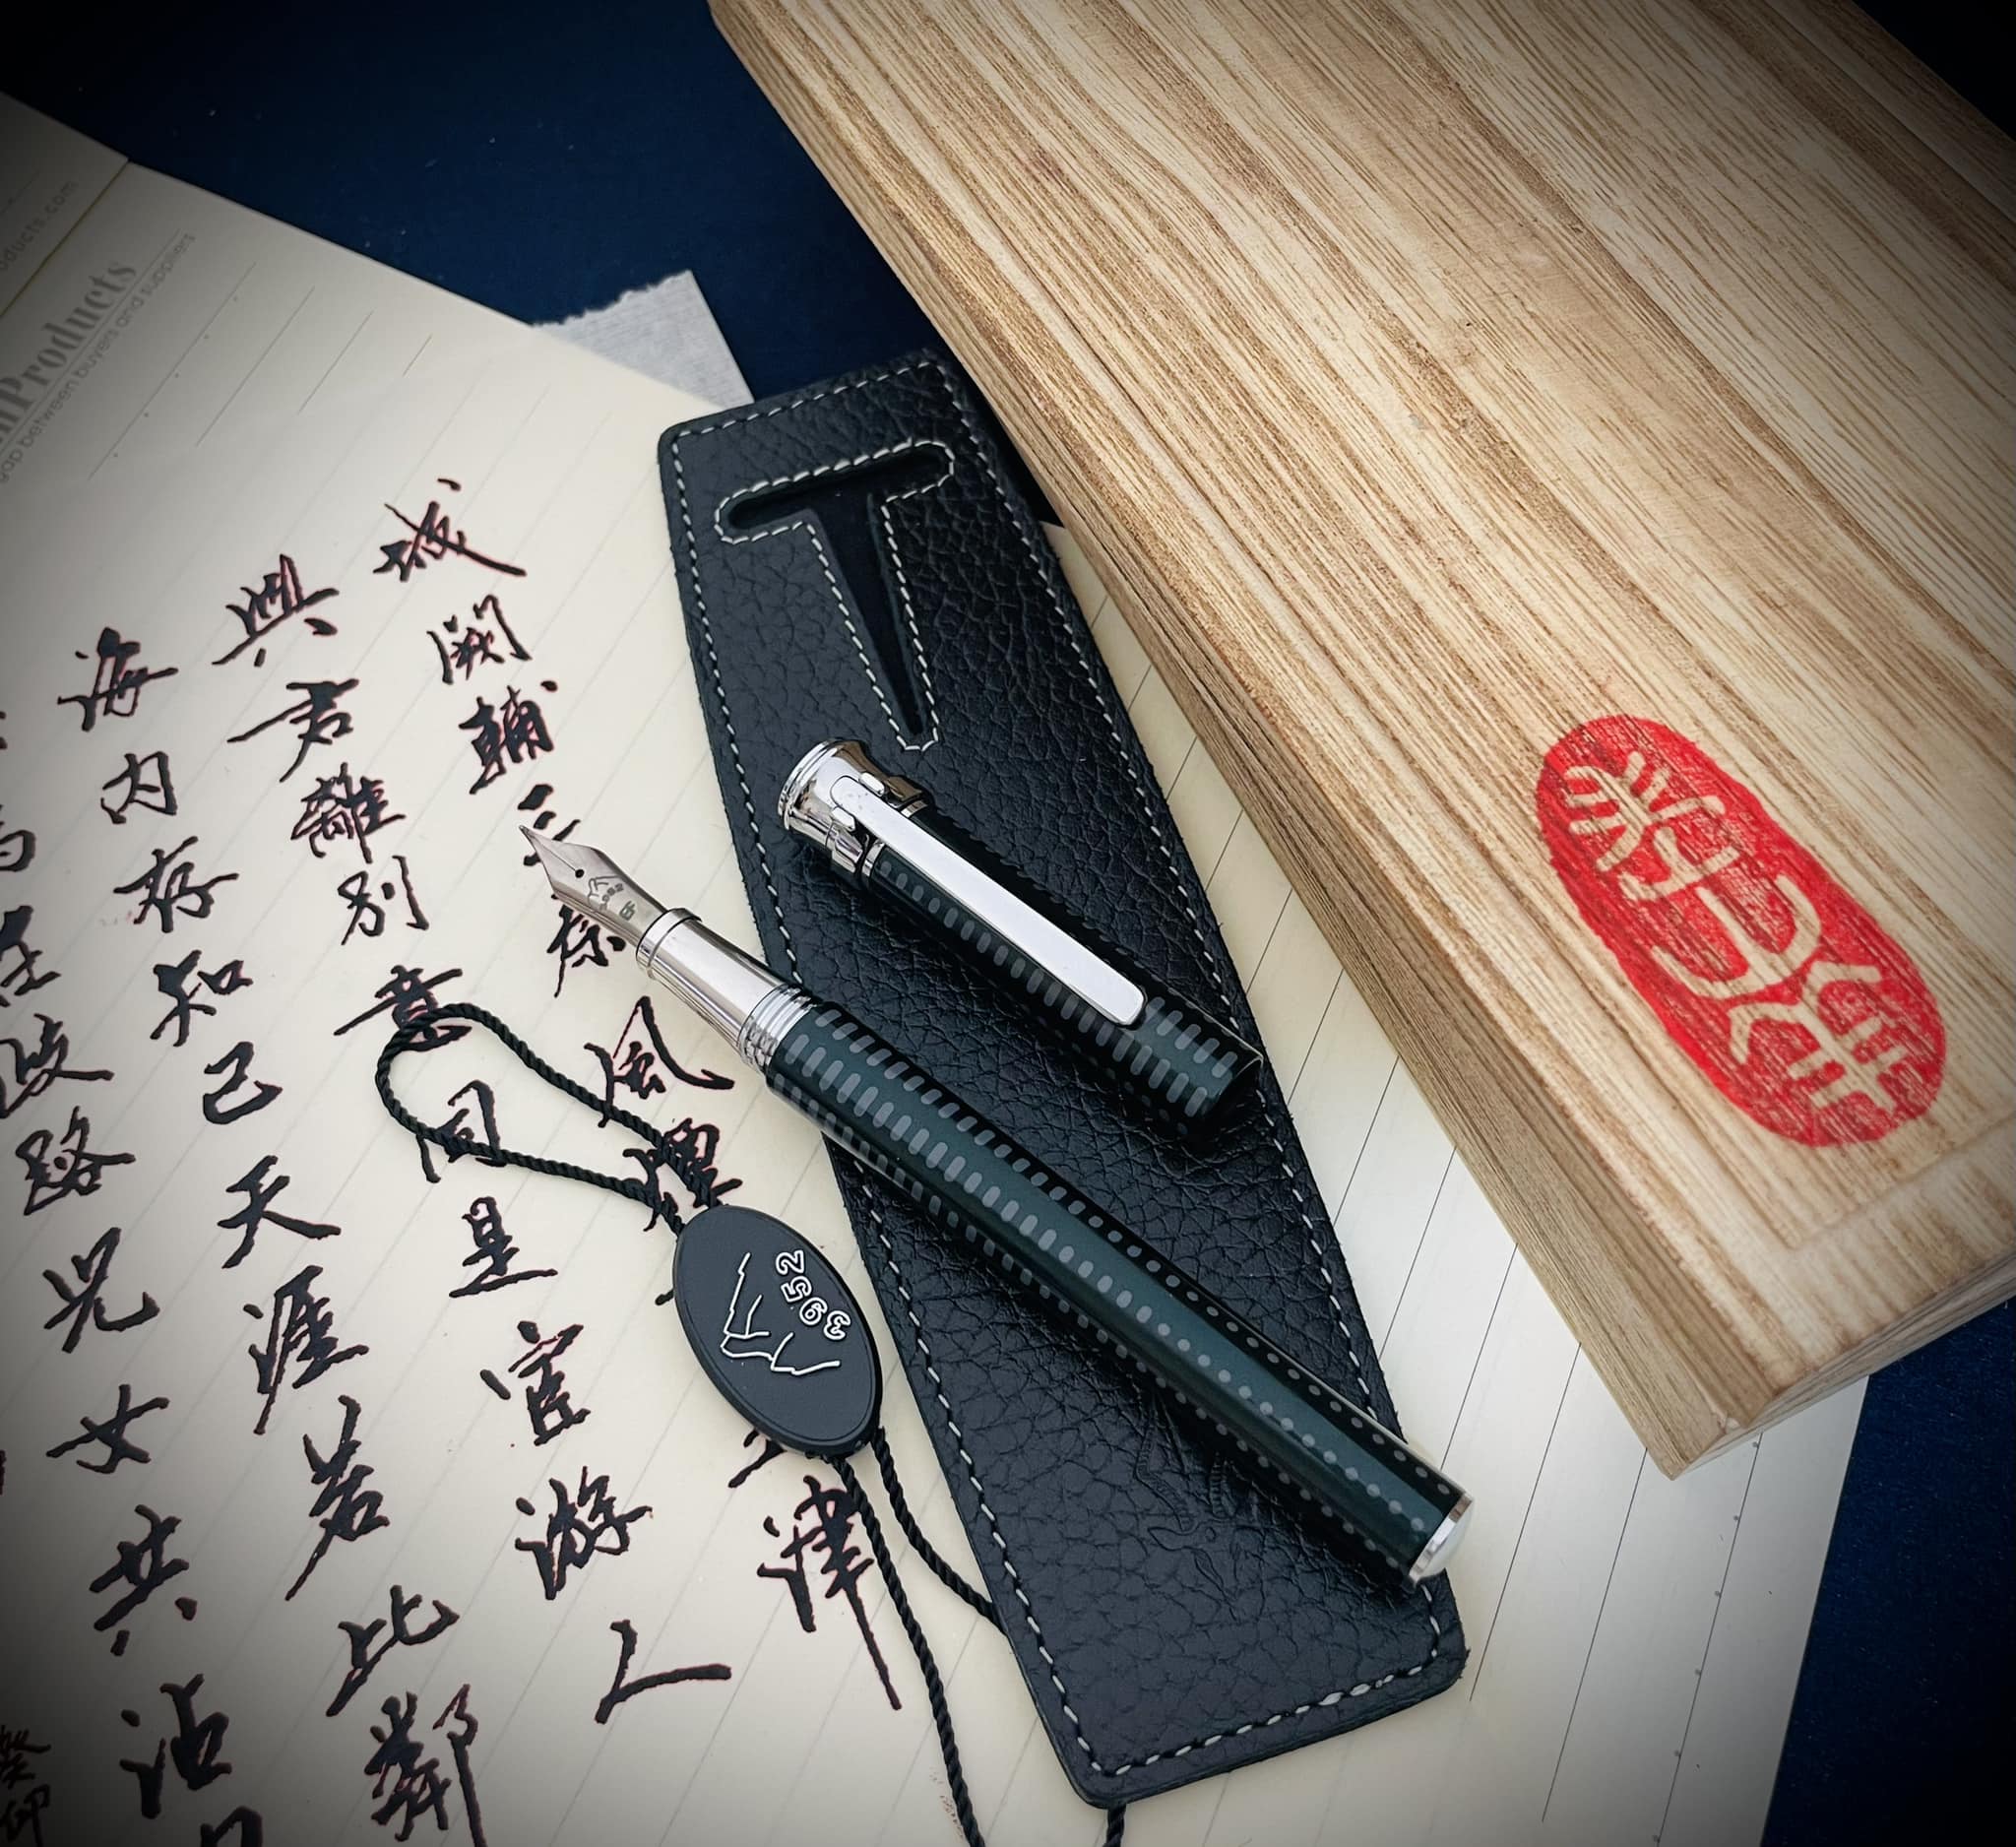 城闕輔三秦風煙津
與君離別意同是宦游人
海内存知己天涯若比鄰
為在歧路兒女共沾
癸卯
Products
gap between buyers and suppliers
3952